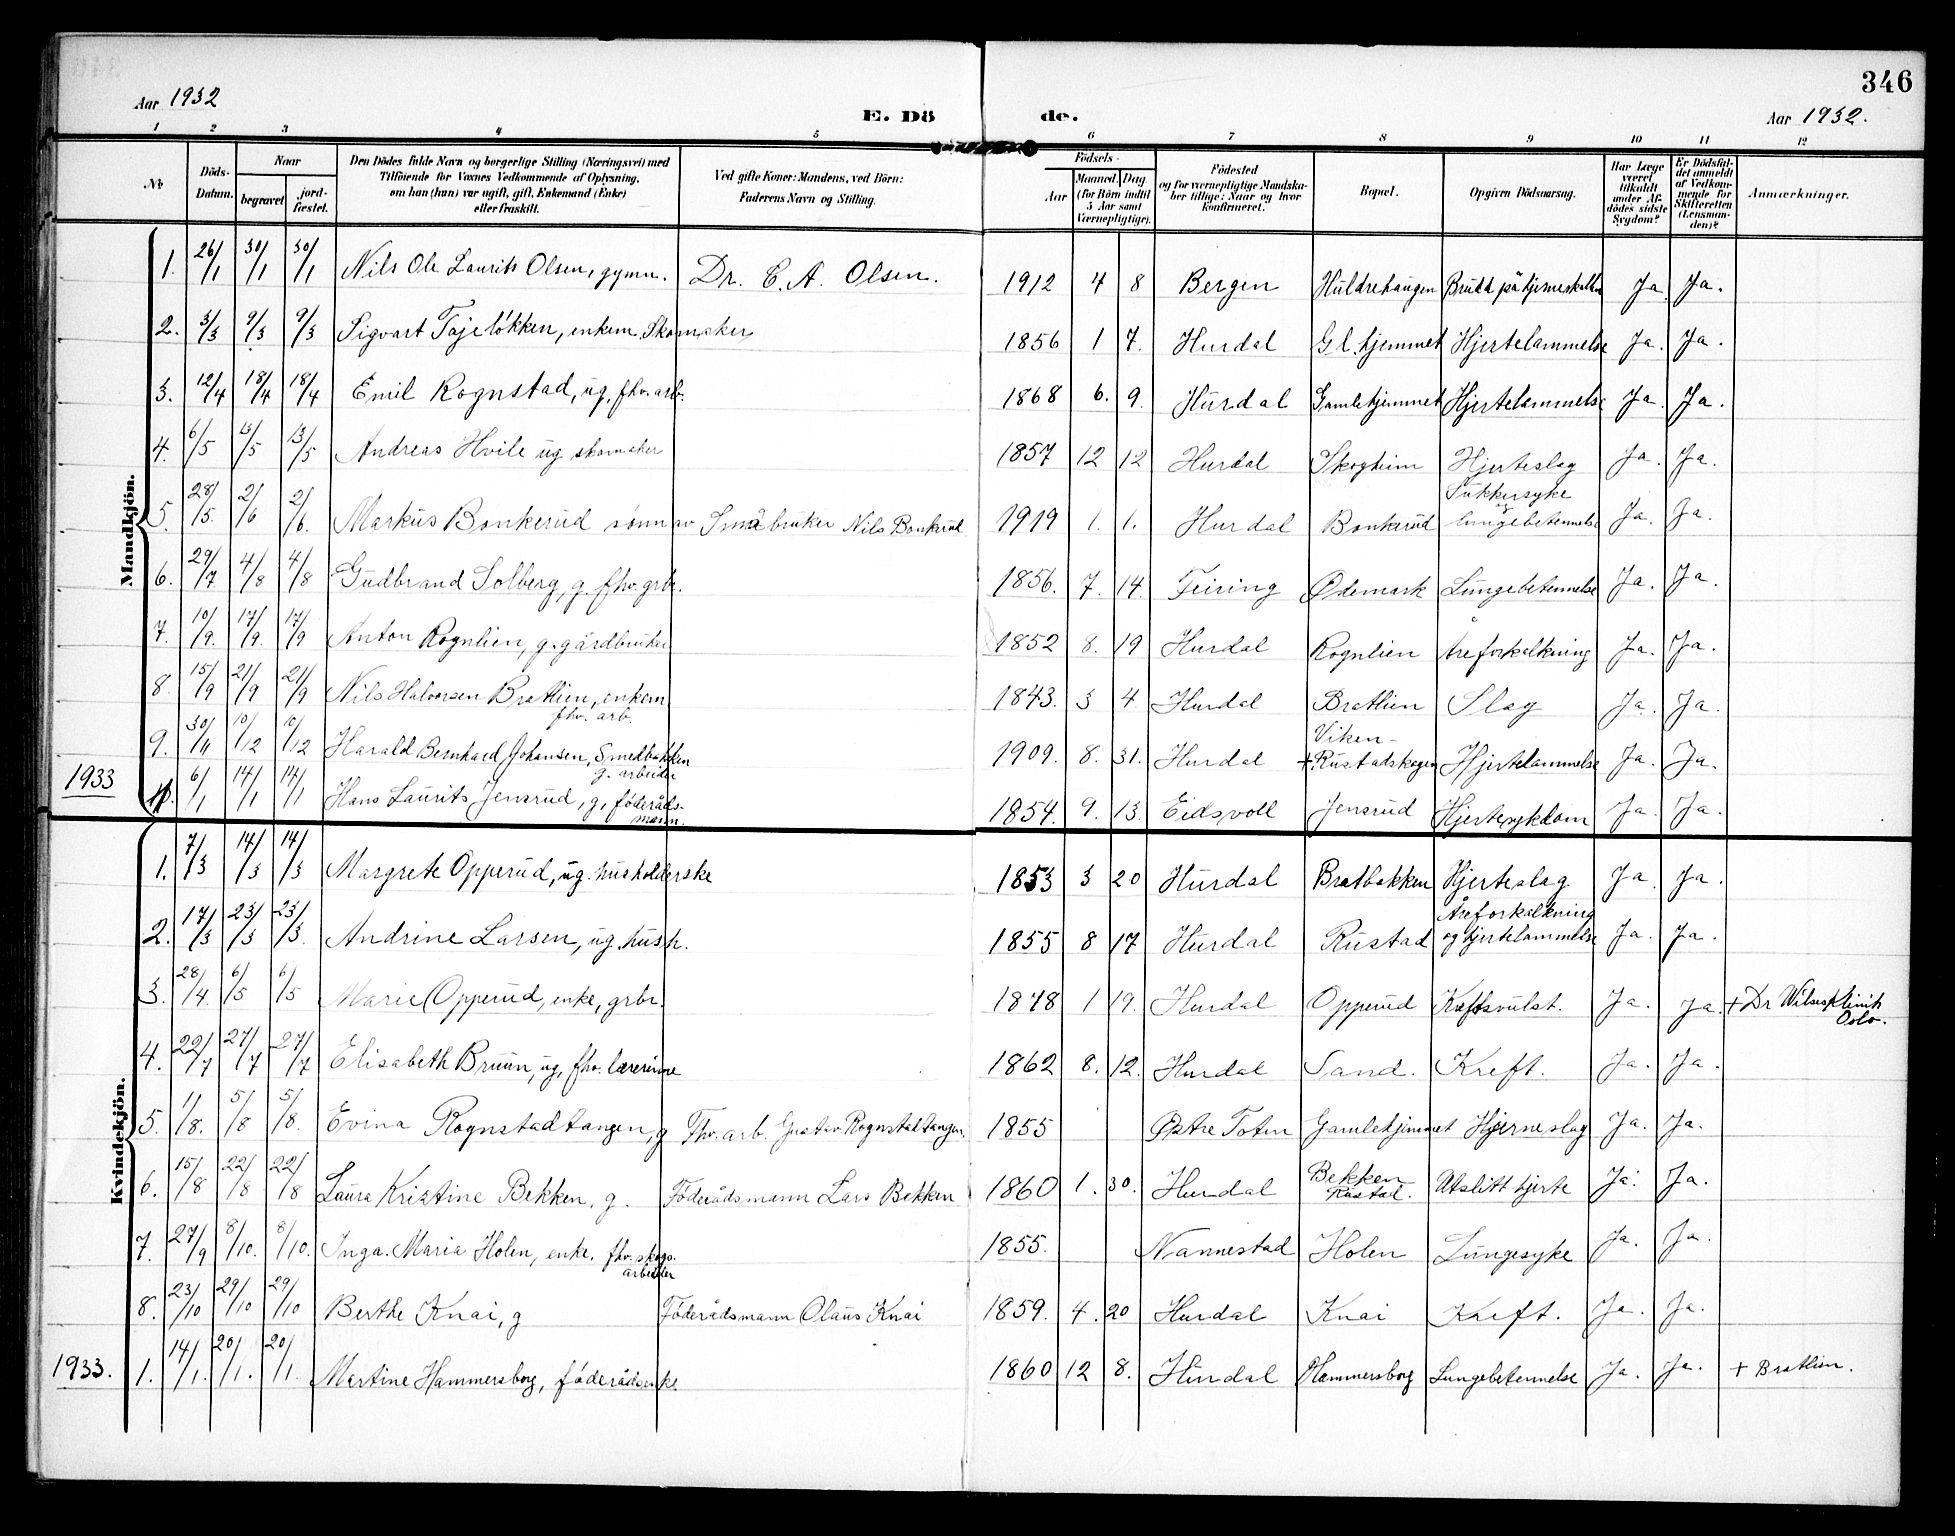 346
Aar 1932
E. Dö
de.
Aar 1932.
1 2 3 4 5 6 7 8 9 10 11 12
No.
Döds-
Datum.
Naar
begravet
jord-
fæstet.
Den Dödes fulde Navn og borgerlige Stilling (Næringsvei) med
Tilföiende for Voxnes Vedkommende af Oplysning,
om han (hun) var ugift, gift, Enkemand (Enke)
eller fraskilt.
Ved gifte Koner: Mandens, ved Börn:
Faderens Navn og Stilling.
Födsels-
Aar
Maaned. Dag
(for Börn indtil
5 Aar samt
Værnepligtige).
Födested
og for værnepligtige Mandska-
ber tillige: Naar og hvor
konfirmeret.
Bopæl.
Opgiven Dödsaarsag.
Har Læge
været
tilkaldt
under Af-
dödes sidste
Sygdom?
Er Dödsfal-
det anmeldt
af Vedkom-
mende for
Skifteretten
(Lensman-
den)?
Anmærkninger.
Mandkjön.
1. 26/1 30/1 30/1 Nils Ole Laurits Olsen, gymn. Dr. C. A. Olsen. 1912 4 8 Bergen Huldrehaugen Brudd på hjerneskallen Ja. Ja.
2. 3/3 9/3 9/3 Sigvart Tajeløkken, enkem. Skomaker 1856 1 7. Hurdal Gl.hjemmet Hjertelammelse Ja. Ja.
3. 12/4 18/4 18/4 Emil Rognstad, ug, fhv. arb. 1868 6. 9. Hurdal Gamlehjemmet Hjertelammelse Ja. Ja.
4. 6/5 13/5 13/5 Andreas Hvile ug skomaker 1857 12 12 Hurdal Skogheim Hjerteslag Ja. Ja.
5. 28/5. 2/6 2/6. Markus Bonkerud sønn av Småbruker Nils Bonkerud 1919 1. 1. Hurdal Bonkerud Sukkersyke
og
lungebetennelse Ja. Ja.
6. 29/7 4/8 4/8 Gudbrand Solberg, g. fhv. grbr. 1856. 7. 14. Feiring Ødemark Lungebetennelse Ja. Ja.
7. 10/9. 17/9. 17/9 Anton Rognlien, g. gårdbruker 1852 8. 19 Hurdal Rognlien Åreforkalkning Ja. Ja.
8. 15/9 21/9 21/9 Nils Halvorsen Bratlien, enkem
fhv. arb. 1843. 3 4 Hurdal Bratlien Slag Ja. Ja.
9. 30/11 10/12 10/12 Harald Bernhard Johansen, Smedbakken
g. arbeider 1909. 8. 31. Hurdal Viken-
+Rustadskogen Hjertelammelse Ja. Ja.
1933
1. 6/1 14/1 14/1 Hans Laurits Jensrud, g, føderåds-
mann. 1854. 9. 13. Eidsvoll Jensrud Hjertesykdom Ja. Ja.
Kvindekjön.
1. 7/3 14/3 14/3 Margrete Opperud, ug. husholderske 1853 3 20 Hurdal Bratbakken Hjerteslag Ja. Ja.
2. 17/3 23/3 23/3. Andrine Larsen, ug. hush. 1855 8 17 Hurdal Rustad Åreforkalkning
og hjertelammelse Ja. Ja.
3. 28/4. 6/5 6/5 Marie Opperud, enke, grbr. 1848 1 19. Hurdal Opperud Kreftsvulst. Ja. Ja. + Dr Wilses Klinik
Oslo.
4. 22/7 27/7 27/7 Elisabeth Bruun, ug, fhv. lærerinne 1862 8. 12. Hurdal Sand. Kreft. Ja. Ja.
5. 1/8. 5/8 5/8. Evina Rognstadtangen, g Fhv. arb. Gustav Rognstadtangen. 1855 Østre Toten Gamlehjemmet Hjerneslag Ja. Ja.
6. 15/8 22/8 22/8 Laura Kristine Bekken, g. Føderådsmann Lars Bekken 1860 1. 30. Hurdal Bekken
Rustad. Utslitt hjerte Ja. Ja.
7. 27/9 8/10. 8/10. Inga. Maria Holen, enke. fhv. skogs-
arbeider 1855. Nannestad Holen Lungesyke Ja. Ja.
8. 23/10 29/10 29/10 Berthe Knai, g Føderådsmann Olaus Knai 1859. 4. 20 Hurdal Knai Kreft. Ja. Ja.
1933. 1. 14/1. 20/1. 20/1. Martine Hammersborg, føderådsenke. 1860 12 8. Hurdal Hammersborg Lungebetennelse Ja. Ja. + Bratlien.